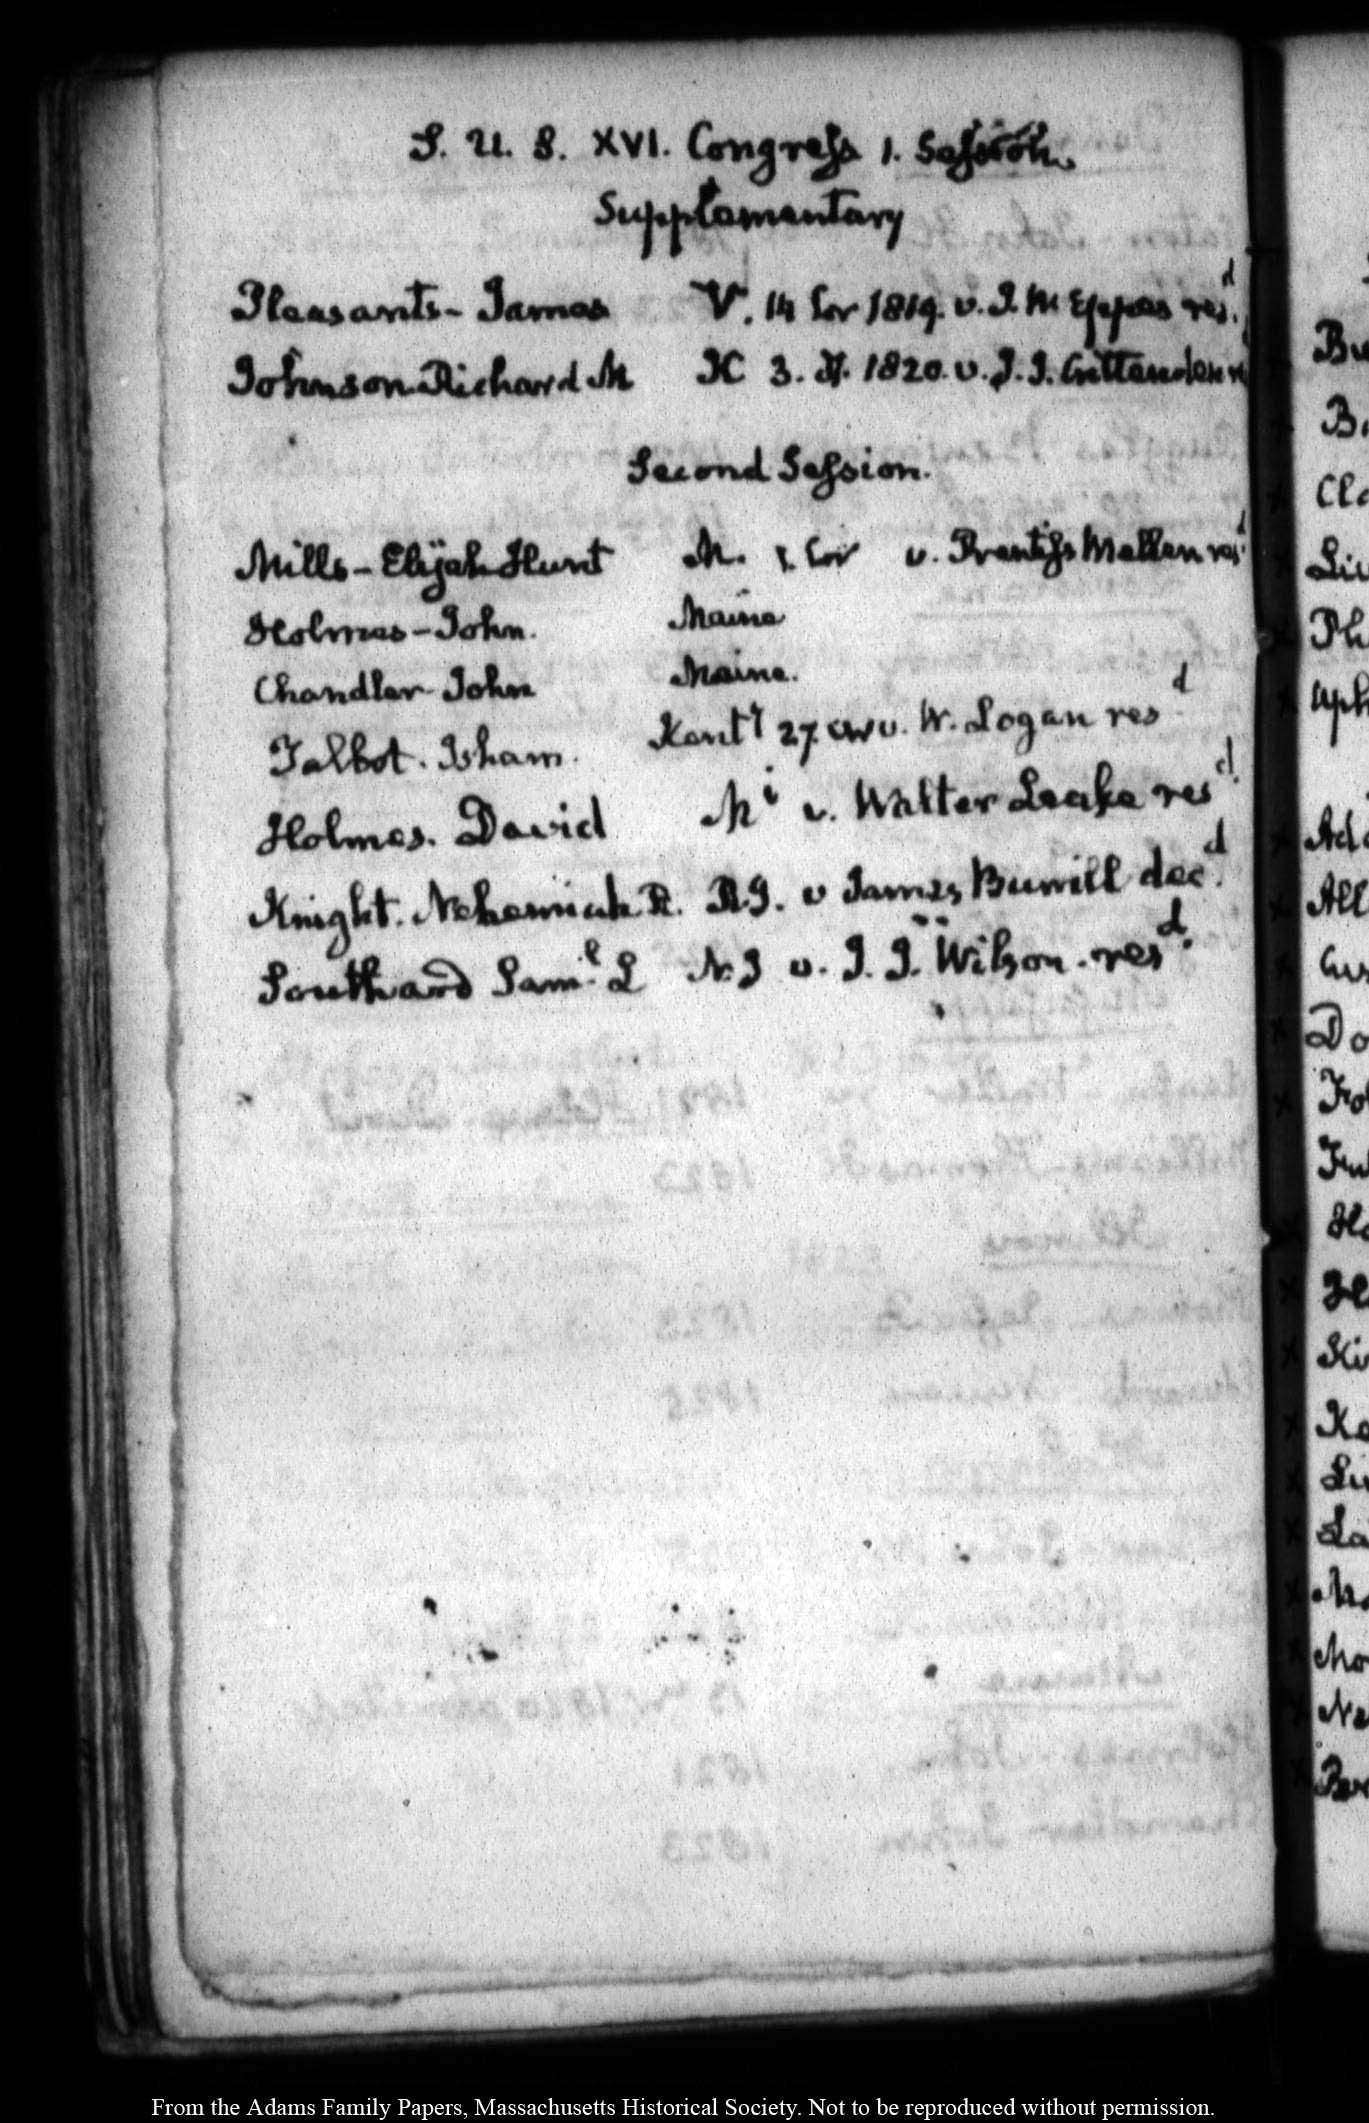 S. U. S. XVI. Congress 1. Session.
Supplementary
Pleasants - James V. 14 Cor 1819. v. J. W. Eppes resd.
Johnson Richard M K 3. 1820. v. J. J. Crittenden
Second Session.
Mills - Elijah Hunt M. 1. Cor v. Prentiss Mellen resd.
Holmes - John. Maine
Chandler John Maine.
Talbot. Isham. Kenty 27 v. W. Logan resd
Holmes. David Mi v. Walter Leake resd.
Knight. Nehemiah R. R.I. v James Burrill decd.
Southard Saml. L N. J v. J. J. Wilson. resd.
From the Adams Family Papers, Massachusetts Historical Society. Not to be reproduced without permission.